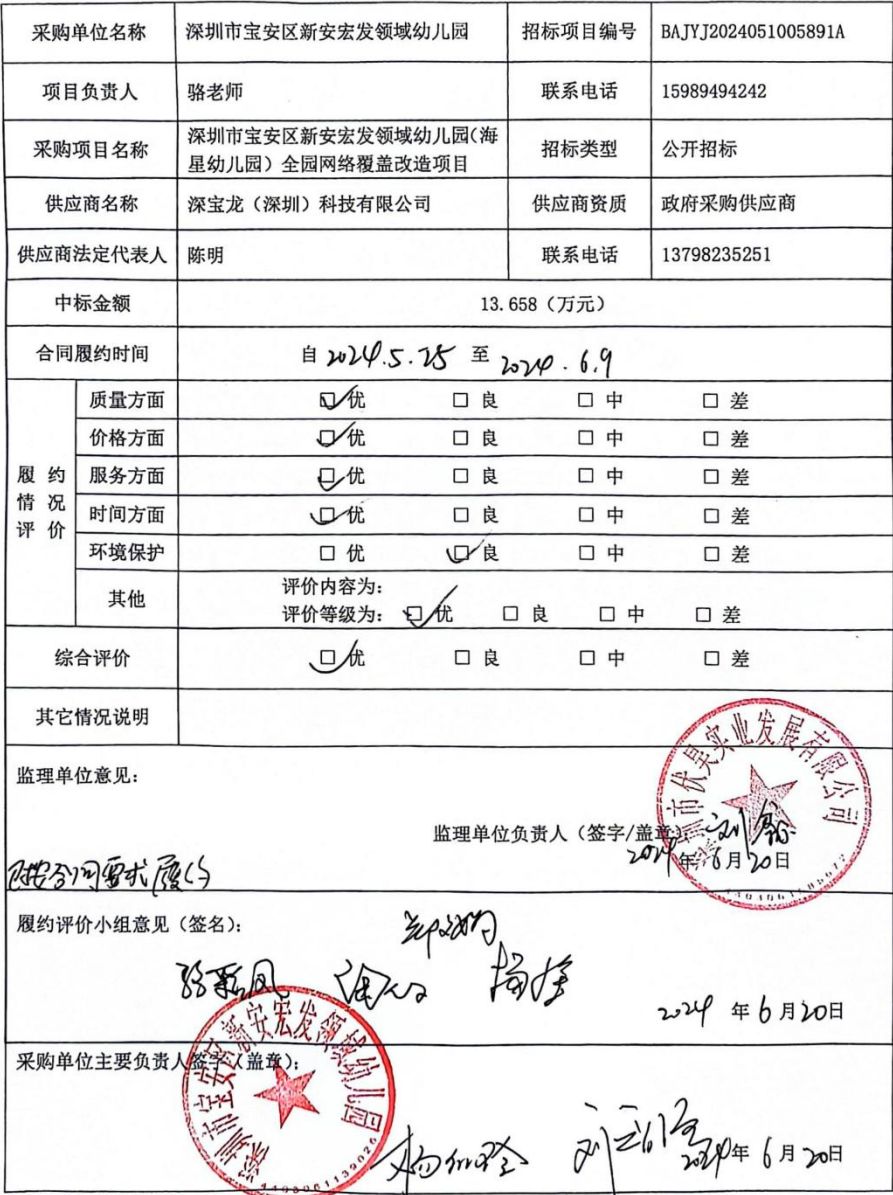 采购单位名称 深圳市宝安区新安宏发领域幼儿园 招标项目编号 BAJYJ2024051005891A
项目负责人 骆老师 联系电话 15989494242
采购项目名称 深圳市宝安区新安宏发领域幼儿园(海星幼儿园)全园网络覆盖改造项目 招标类型 公开招标
供应商名称 深宝龙(深圳)科技有限公司 供应商资质 政府采购供应商
供应商法定代表人 陈明 联系电话 13798235251
中标金额 13.658(万元)
合同履约时间 自 2024.5.25 至 2024.6.9
履约情况评价
质量方面 ☑优 □良 □中 □差
价格方面 ☑优 □良 □中 □差
服务方面 ☑优 □良 □中 □差
时间方面 ☑优 □良 □中 □差
环境保护 □优 ☑良 □中 □差
其他 评价内容为:
评价等级为: ☑优 □良 □中 □差
综合评价 ☑优 □良 □中 □差
其它情况说明
监理单位意见:
监理单位负责人(签字/盖章):
2024年6月20日
已按合同要求履约
履约评价小组意见(签名):
2024年6月20日
采购单位主要负责人签字(盖章):
深圳市宝安区新安宏发领域幼儿园
2024年6月20日